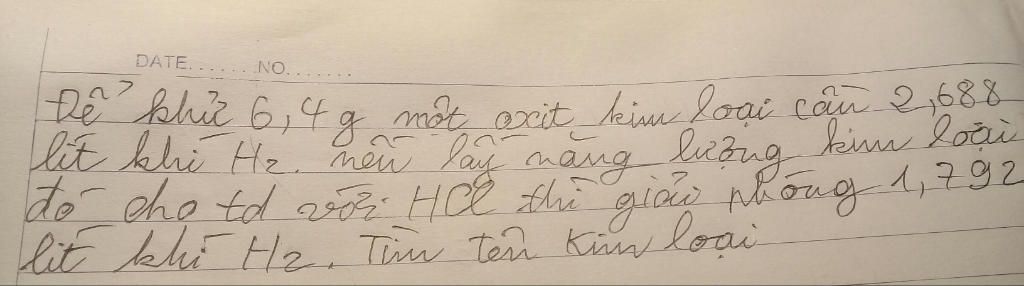 DATE.......NO.......
Để khử 6,4g một oxit kim loại cần 2,688
lít khí H2. nếu lấy năng lượng kim loại
đó cho td với HCl thì giải phóng 1,792
lít khí H2. Tìm tên kim loại